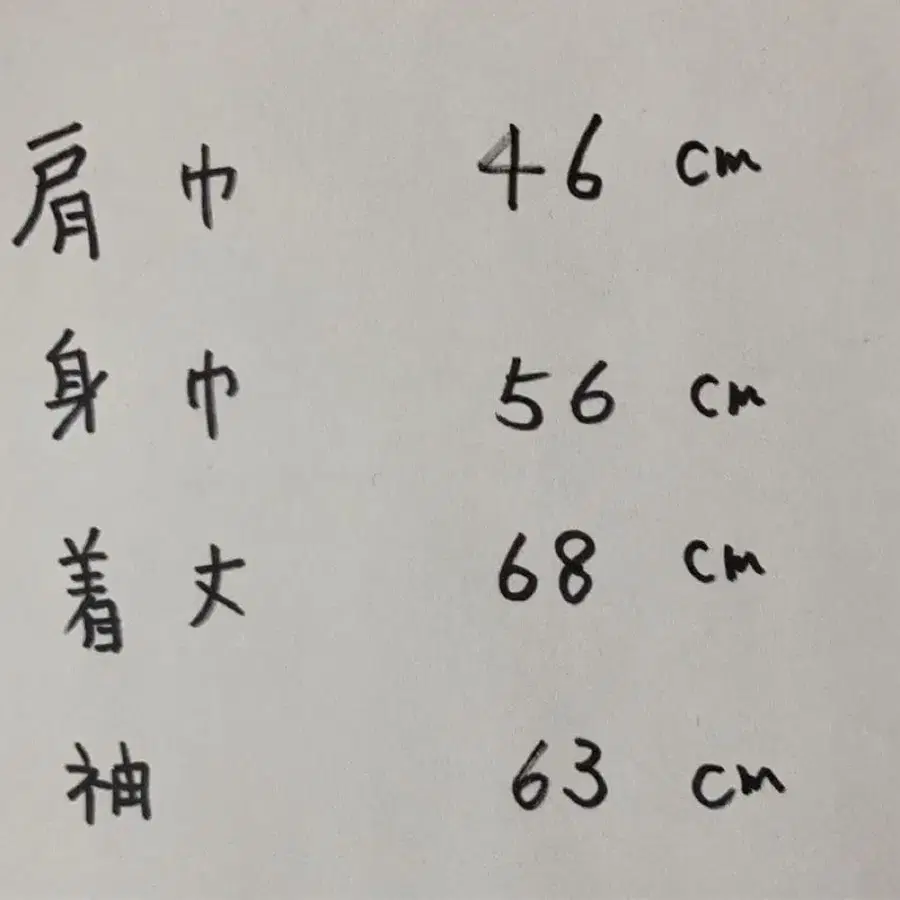 肩巾 46 cm
身巾 56 cm
着丈 68 cm
袖 63 cm